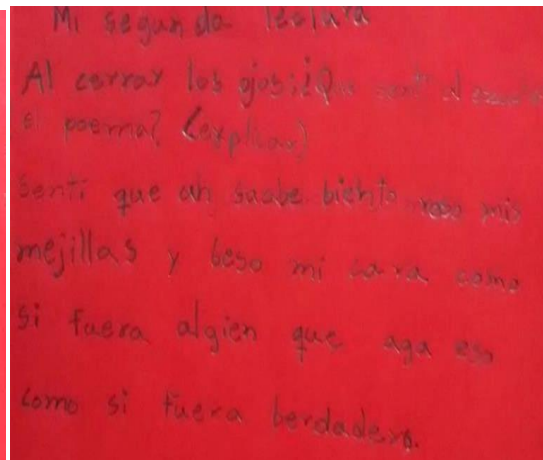 Mi segunda lectura
Al cerrar los ojos: ¿Que sentí al
el poema? (explicar)
Senti que un suabe biento roso mis
mejillas y beso mi cara como
si fuera algien que aga eso
como si fuera berdadero.